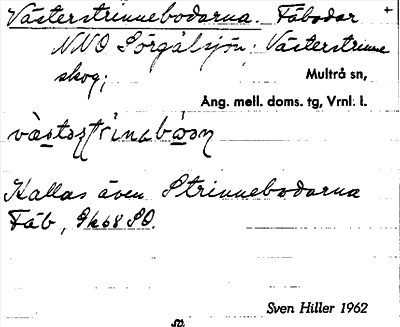 Västerstrinnebodarna. Fäbodar +
NNO Sörgålsjön; Västerstrinne
skog;
Multrå sn,
Ång. mell. doms. tg, Vrnl. l.
Kallas även Strinnebodarna
Fäb, Gk 68 SO.
Sven Hiller 1962